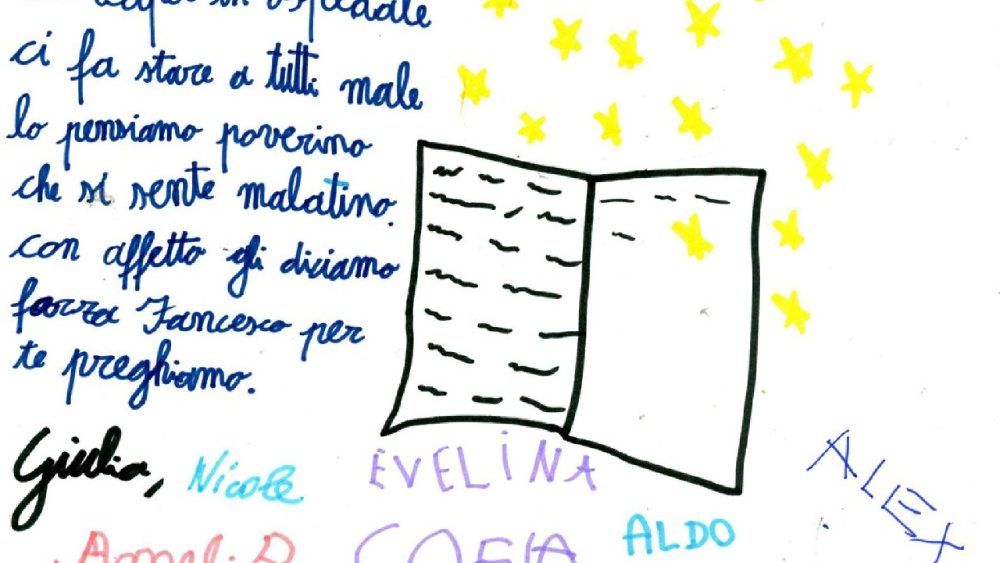 in ospedale
ci fa stare a tutti male
lo pensiamo poverino
che si sente malatino.
con affetto gli diciamo
forza Fancesco per
te preghiamo.
Giulia,
Nicole
EVELINA
ALDO
ALEX
SOFIA